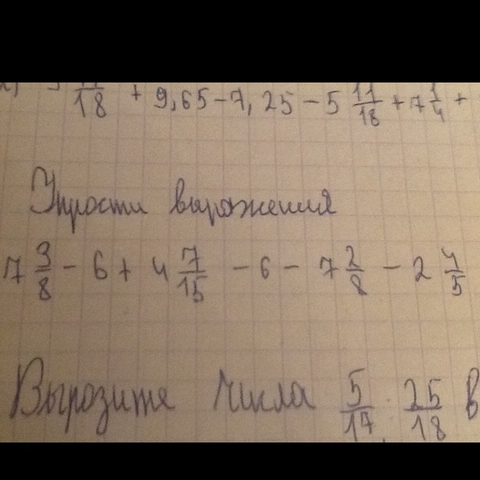 11/18 + 9,65 - 7,25 - 5 11/18 + 7 1/4 +
Упрости выражения
7 3/8 - 6 + 4 7/15 - 6 - 7 2/8 - 2 4/5
Вырозите числа 5/17, 25/18 в